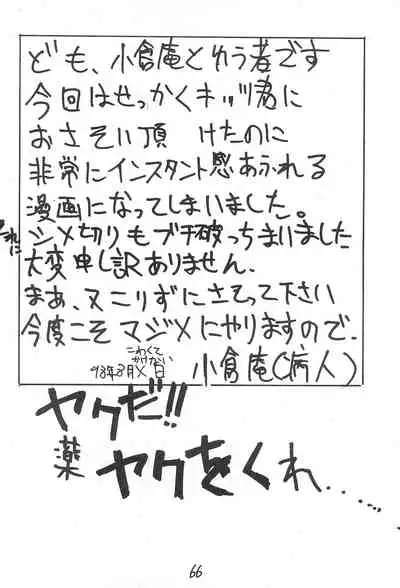 ども、小倉庵とゆう者です
今回はせっかくキッツ君に
おさそい頂けたのに
非常にインスタント感あふれる
漫画になってしまいました。
それに
シメ切りもブチ破っちまいました
大変申し訳ありません.
まあ、又こりずにさそって下さい
今度こそマジメにやりますので.
こわくて
かけない
'93年8月X日
小倉庵(病人)
ヤクだ!!
薬
ヤクをくれ.....
66